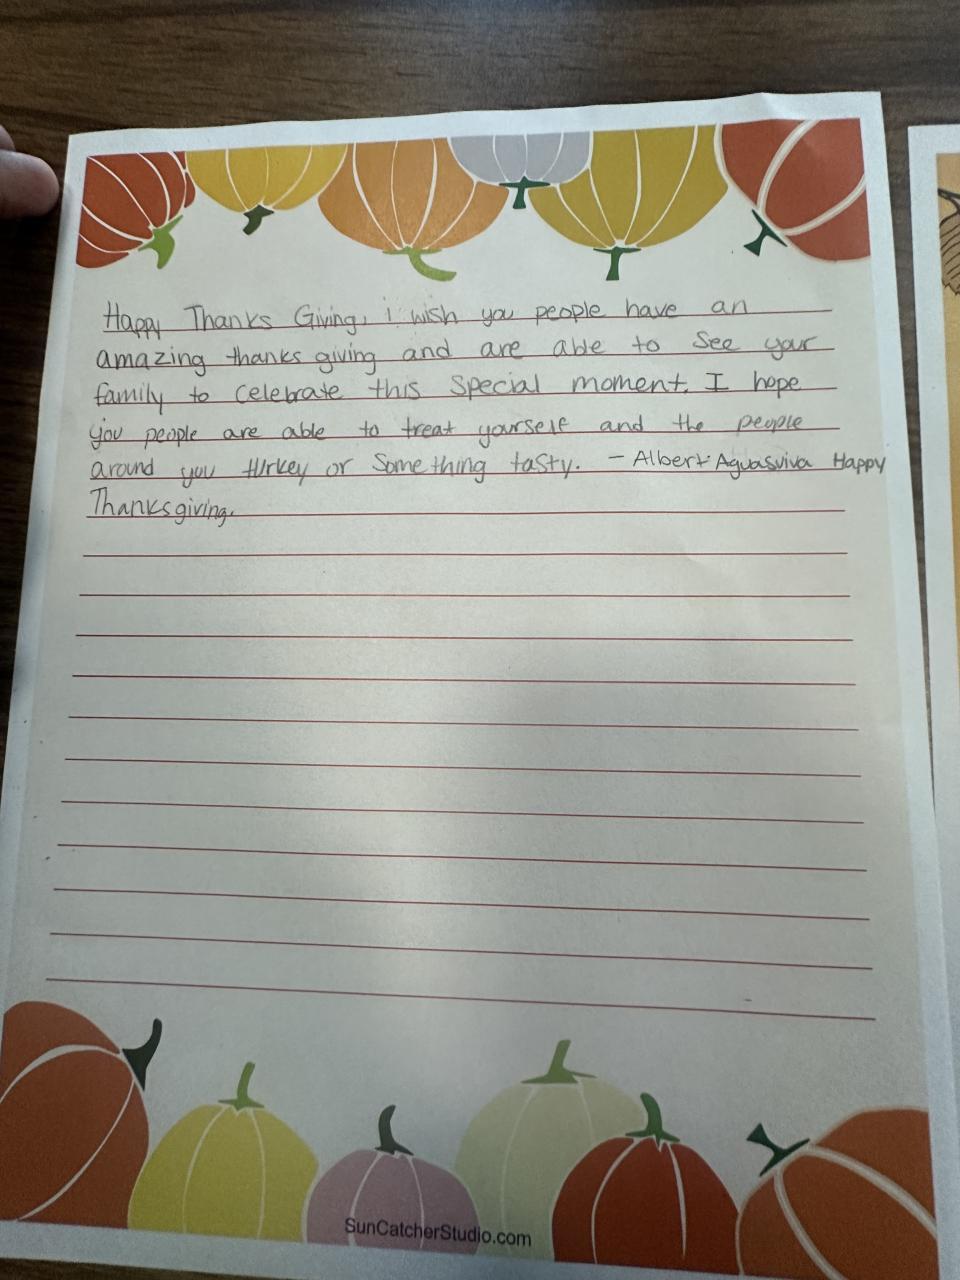 Happy Thanks Giving, i wish you people have an
amazing thanks giving and are able to See your
family to celebrate this Special moment. I hope
you people are able to treat yourself and the people
around you turkey or Something tasty. - Albert Aguasviva Happy
Thanksgiving.
SunCatcherStudio.com